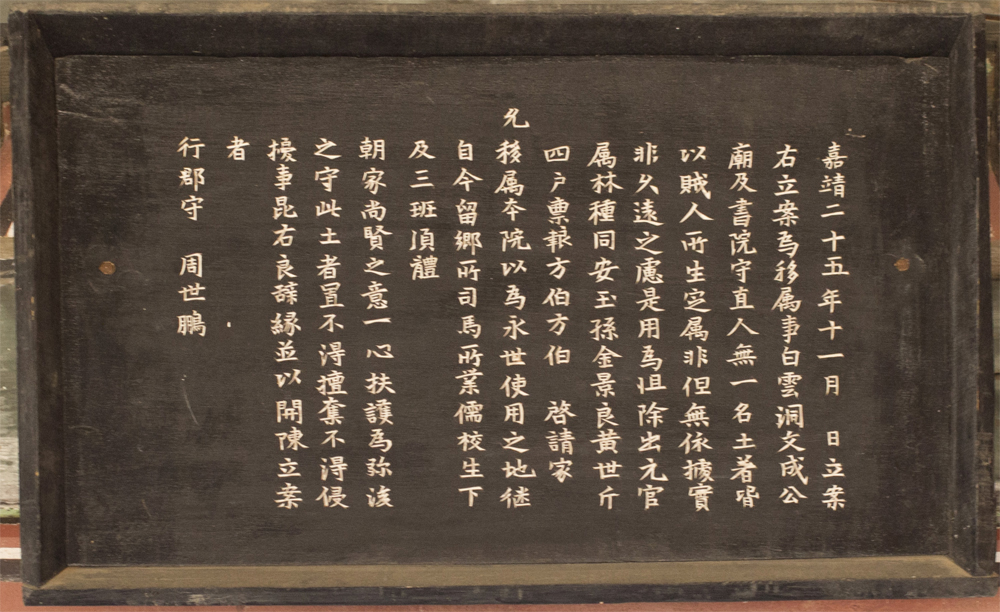 嘉靖二十五年十一月　日立案
右立案為移属事白雲洞文成公
廟及書院守直人無一名土著皆
以賊人所生定属非但無依據實
非久遠之慮是用為怛除出元官
属林種同安玉孫金景良黄世斤
四户稟報方伯方伯　啓請家
允移属本院以為永世使用之地継
自今留郷所司馬所業儒校生下
及三班須體
朝家尚賢之意一心扶護為弥後
之守此土者置不得擅奪不得侵
擾事昆右良辞縁並以開陳立案
者
行郡守　周世鵬